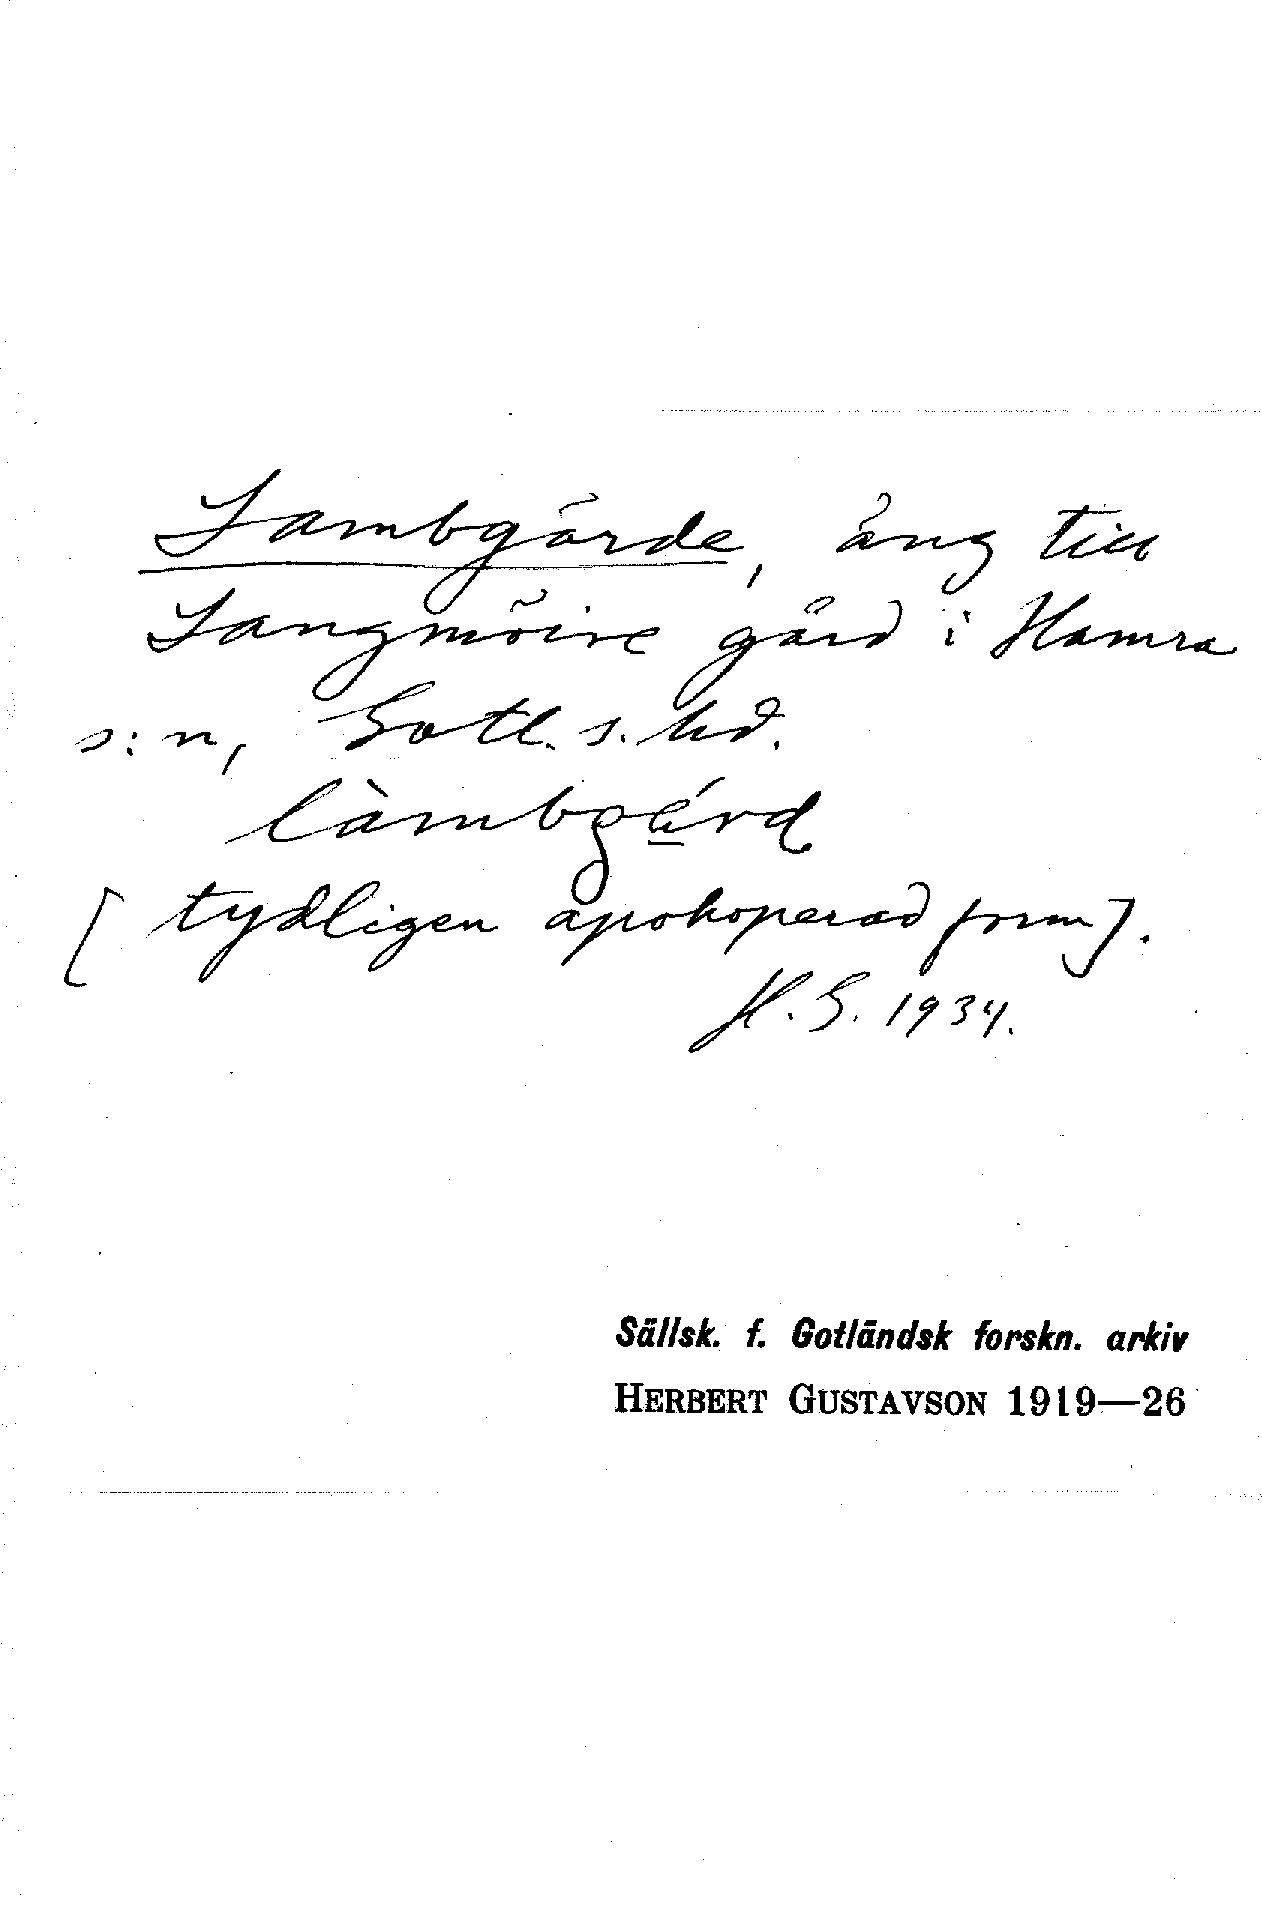 Lambgärde, äng till
Langmöire gård i Hamra
s:n, Gotl. s. hd.
làmbgárd
[tydligen apokoperad form].
H. G. 1934.
Sällsk. f. Gotländsk forskn. arkiv
HERBERT GUSTAVSON 1919—26